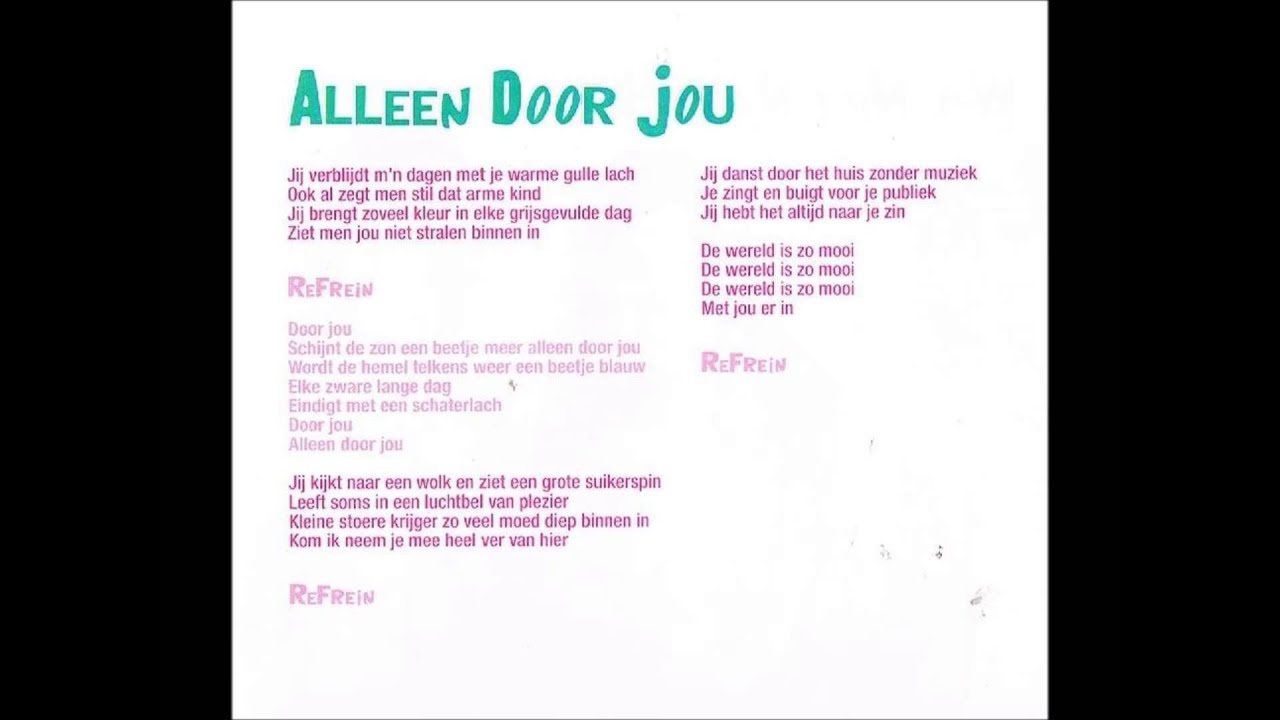 ALLEEN DOOR jOU
Jij verblijdt m'n dagen met je warme gulle lach
Ook al zegt men stil dat arme kind
Jij brengt zoveel kleur in elke grijsgevulde dag
Ziet men jou niet stralen binnen in
REFREiN
Door jou
Schijnt de zon een beetje meer alleen door jou
Wordt de hemel telkens weer een beetje blauw
Elke zware lange dag
Eindigt met een schaterlach
Door jou
Alleen door jou
Jij kijkt naar een wolk en ziet een grote suikerspin
Leeft soms in een luchtbel van plezier
Kleine stoere krijger zo veel moed diep binnen in
Kom ik neem je mee heel ver van hier
REFREiN
Jij danst door het huis zonder muziek
Je zingt en buigt voor je publiek
Jij hebt het altijd naar je zin
De wereld is zo mooi
De wereld is zo mooi
De wereld is zo mooi
Met jou er in
REFREiN